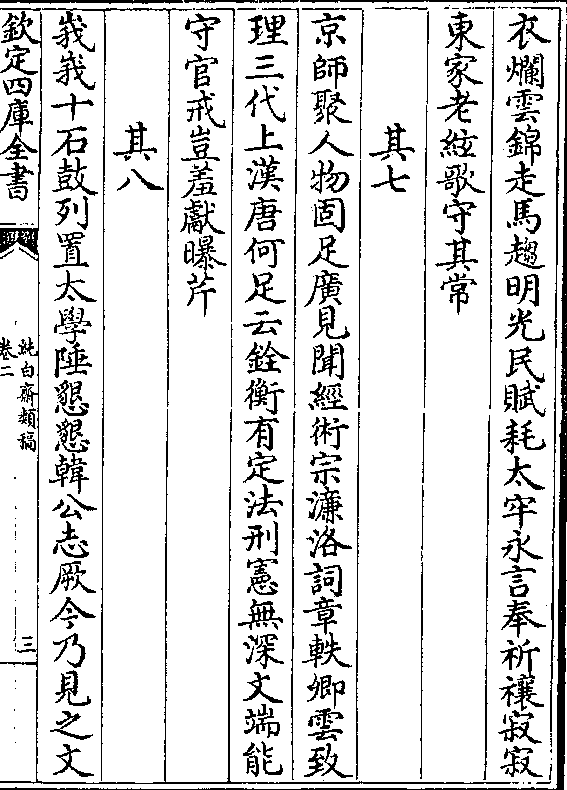 衣爛雲錦走馬趨明光民賦耗太牢永言奉祈禳寂寂
東家老絃歌守其常
其七
京師聚人物固足廣見聞經術宗濂洛詞章軼卿雲致
理三代上漢唐何足云銓衡有定法刑憲無深文端能
守官戒豈羞獻曝芹
其八
峩峩十石鼓列置太學陲懇懇韓公志厥今乃見之文
欽定四庫全書
純白齋類稿
卷二
三